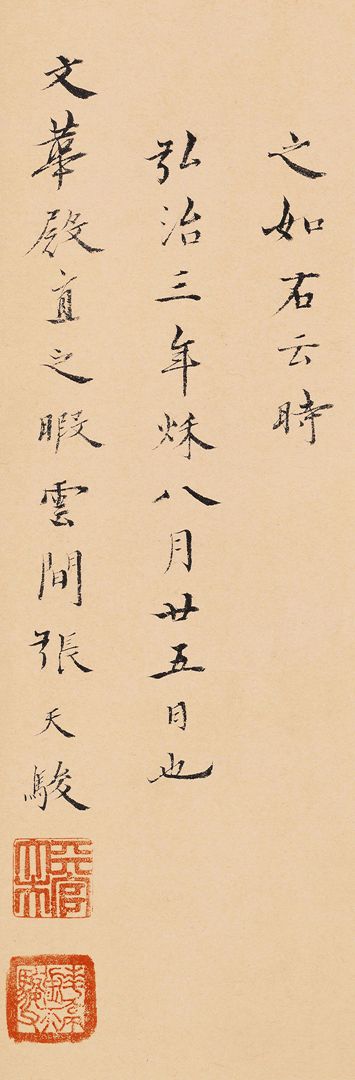 之如右云時
弘治三年秌八月廿五日也
文華殿直之暇雲間張天駿